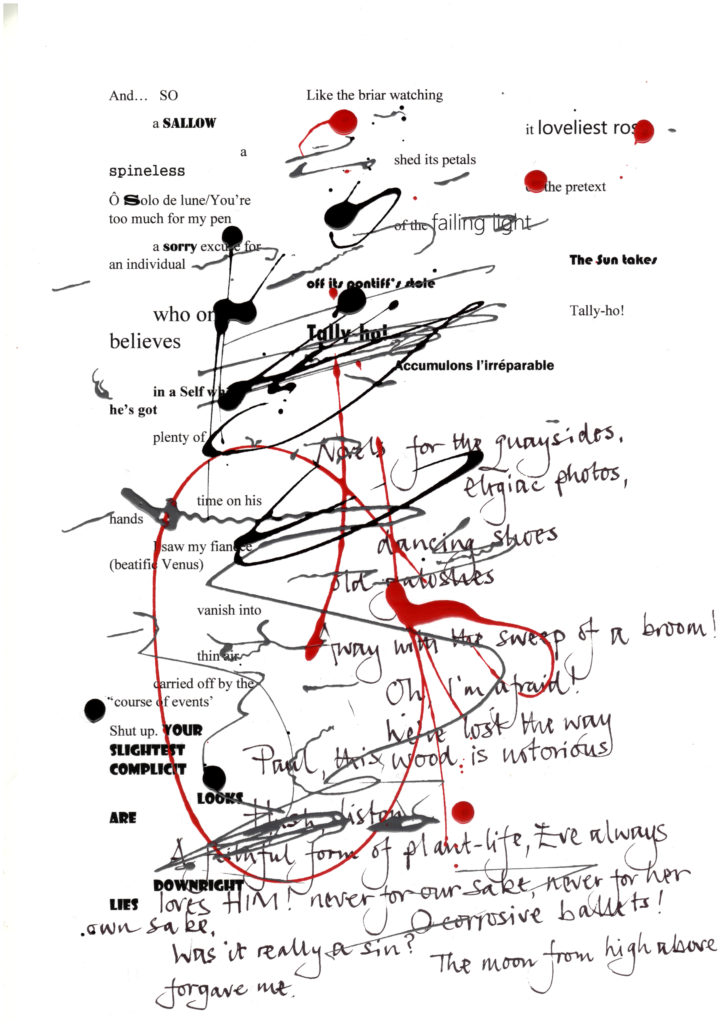 And… SO
Like the briar watching
a SALLOW
it loveliest
a
shed its petals
spineless
the pretext
Ô Solo de lune/You're
too much for my pen
of the failing light
a sorry excuse for
an individual
The Sun takes
off its pontiff's stole
who
Tally-ho!
believes
Tally-ho!
Accumulons l'irréparable
in a Self
he's got
plenty of
Novels for the quaysides,
elegiac photos,
time on his
hands
dancing shoes
I saw my fiancée
(beatific Venus)
old galoshes
vanish into
Away with the sweep of a broom!
thin air
carried off by the
Oh, I'm afraid!
'course of events'
We've lost the way
Shut up. YOUR
SLIGHTEST
Paul, this wood is notorious
COMPLICIT
LOOKS
ARE
Hush, listen
A form of plant-life, Eve always
DOWNRIGHT
LIES
loves HIM! never for our sake, never for her
own sake.
O corrosive ballets!
Was it really a sin?
The moon from high above
forgave me.